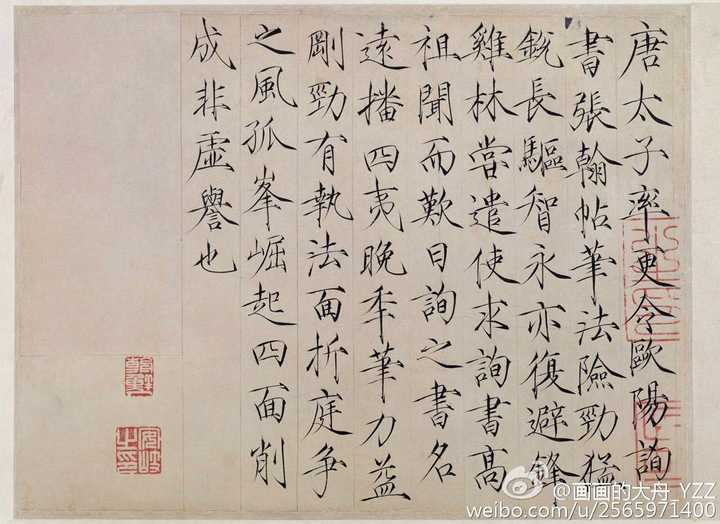 唐太子率更令歐陽詢
書張翰帖筆法險勁猛
銳長驅智永亦復避鋒
雞林嘗遣使求詢書高
祖聞而歎曰詢之書名
遠播四夷晚年筆力益
剛勁有執法面折庭爭
之風孤峯崛起四面削
成非虛譽也
@画画的大舟_YZZ
weibo.com/u/2565971400